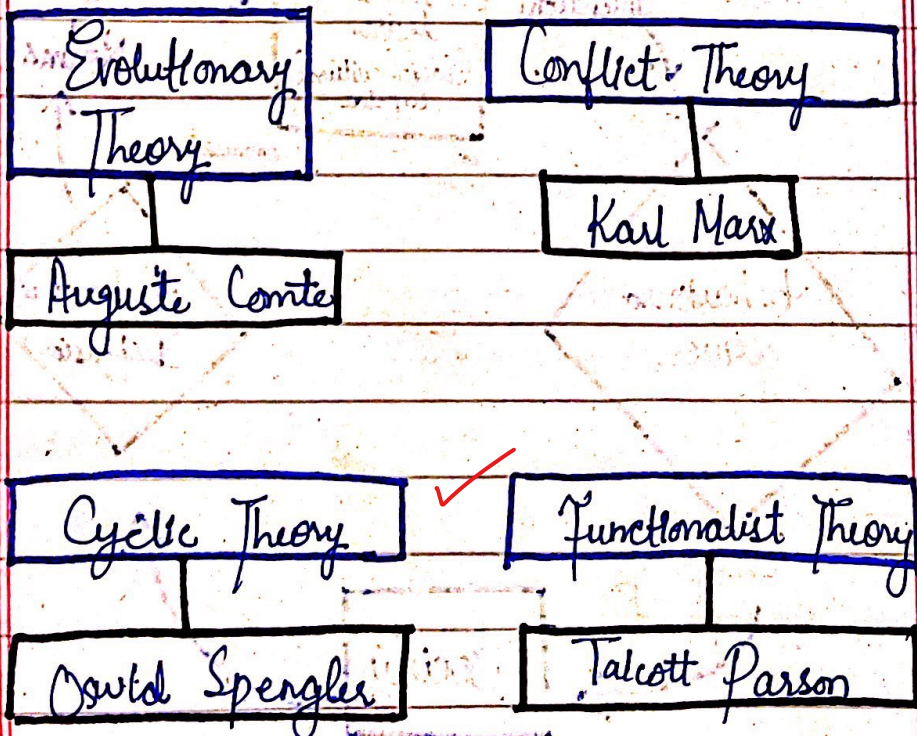 Evolutionary
Theory
Auguste Comte
Conflict Theory
Karl Marx
Cyclic Theory
Oswld Spengler
Functionalist Theory
Talcott Parson